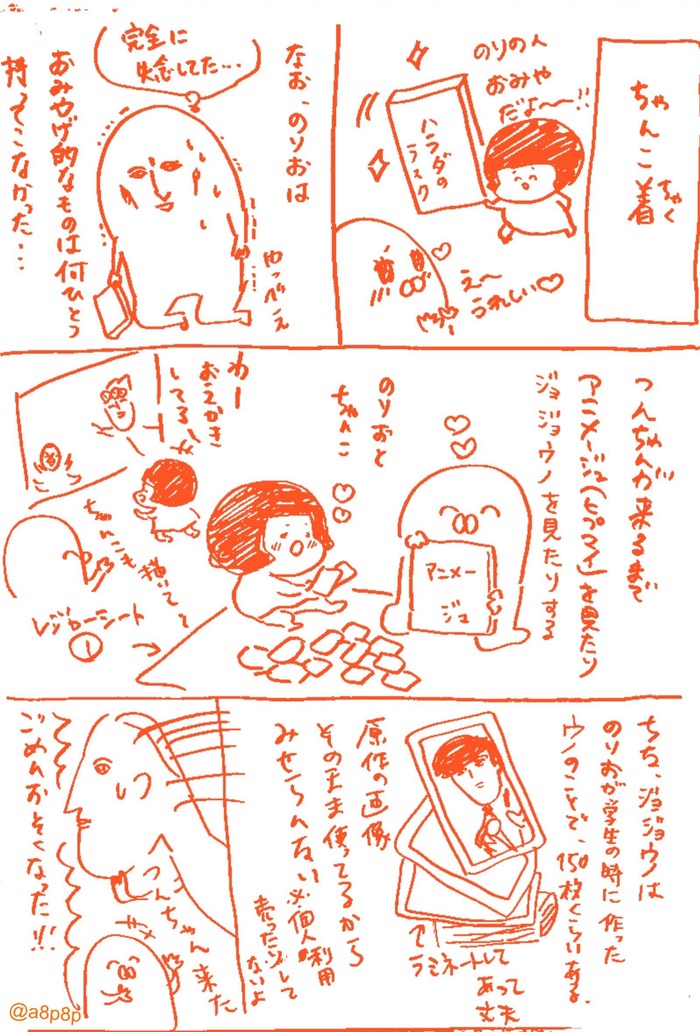 ちゃんこ着
ちゃく
のりのん
おみや
だよ〜〜!!
ハラダの
ラスク
え〜
うれしい♡
なお、のりおは
完全に
失念してた…
おみやげ的なものは何ひとつ
持ってこなかった…
やっべえ
つんちゃんが来るまで
アニメージュ(ヒプマイ)を見たり
ジョジョウノを見たりする
アニメー
ジュ
のりおと
ちゃんこ
わー
おえかき
してる〜
ちゃんこも描いて〜
レジャーシート
①
ちな、ジョジョウノは
のりおが学生の時に作った
ウノのことで、150枚くらいある。
原作の画像
そのまま使ってるから
みせらんない
※個人利用
売ったりして
ないよ
ラミネートして
あって
丈夫
つんちゃん来た
ごめんおそくなった!!!
@a8p8p